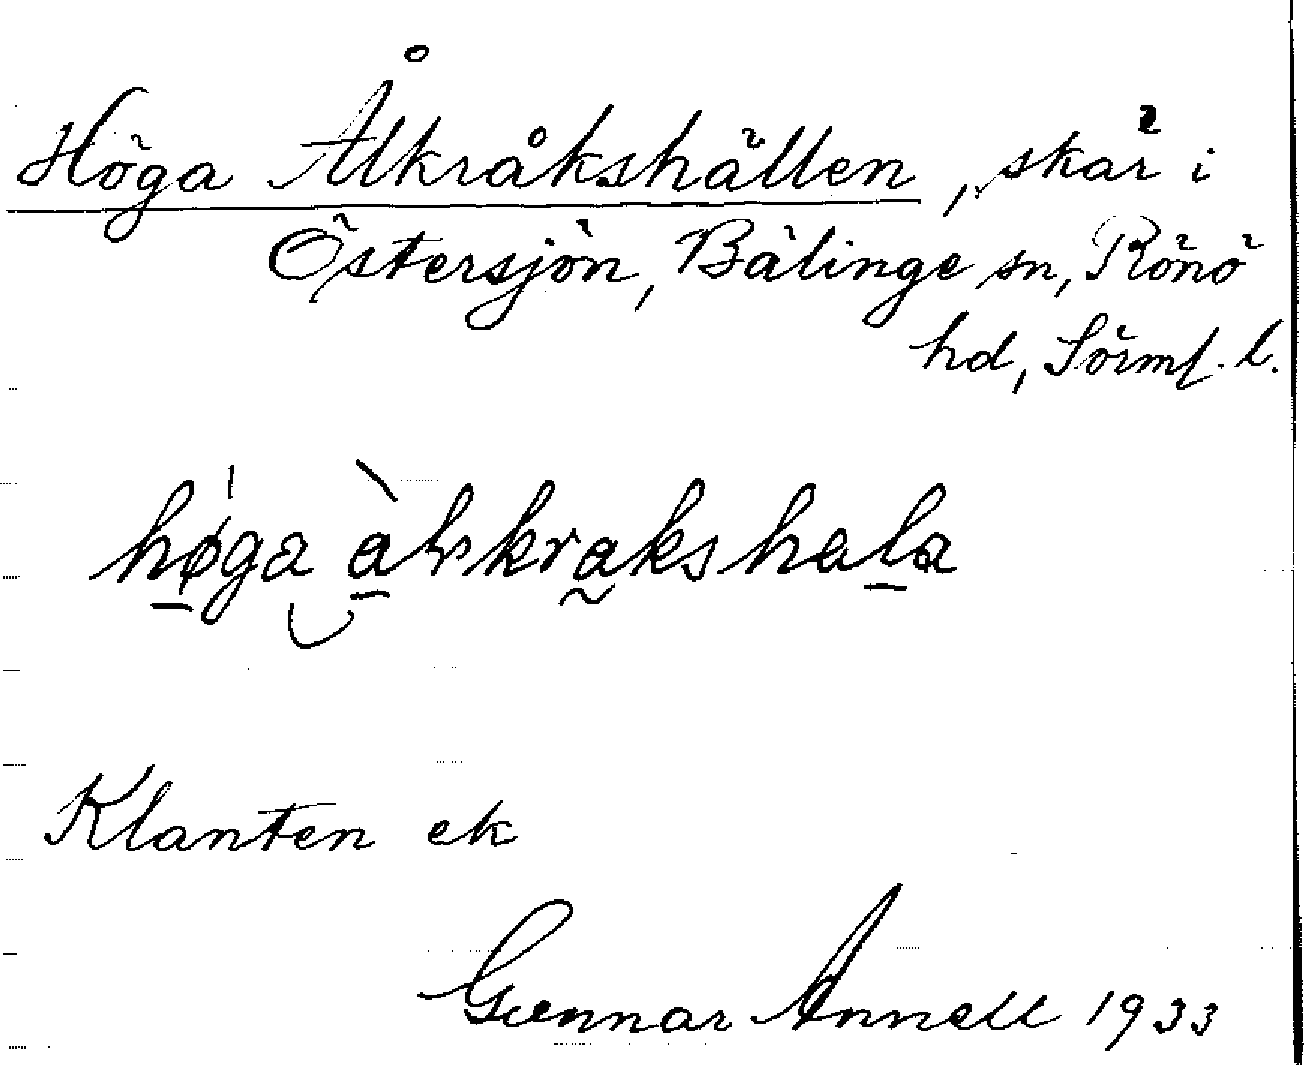 Höga Ålkråkshällen, skär i
Östersjön, Bälinge sn, Rönö
hd, Sörml. l.
Klanten ek
Gunnar Annell 1933